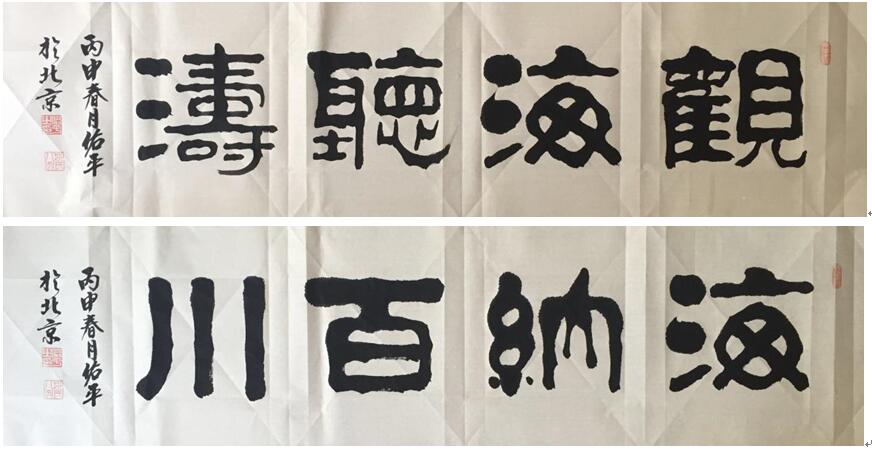 觀海聽濤
丙申春月佑平
於北京
海納百川
丙申春月佑平
於北京